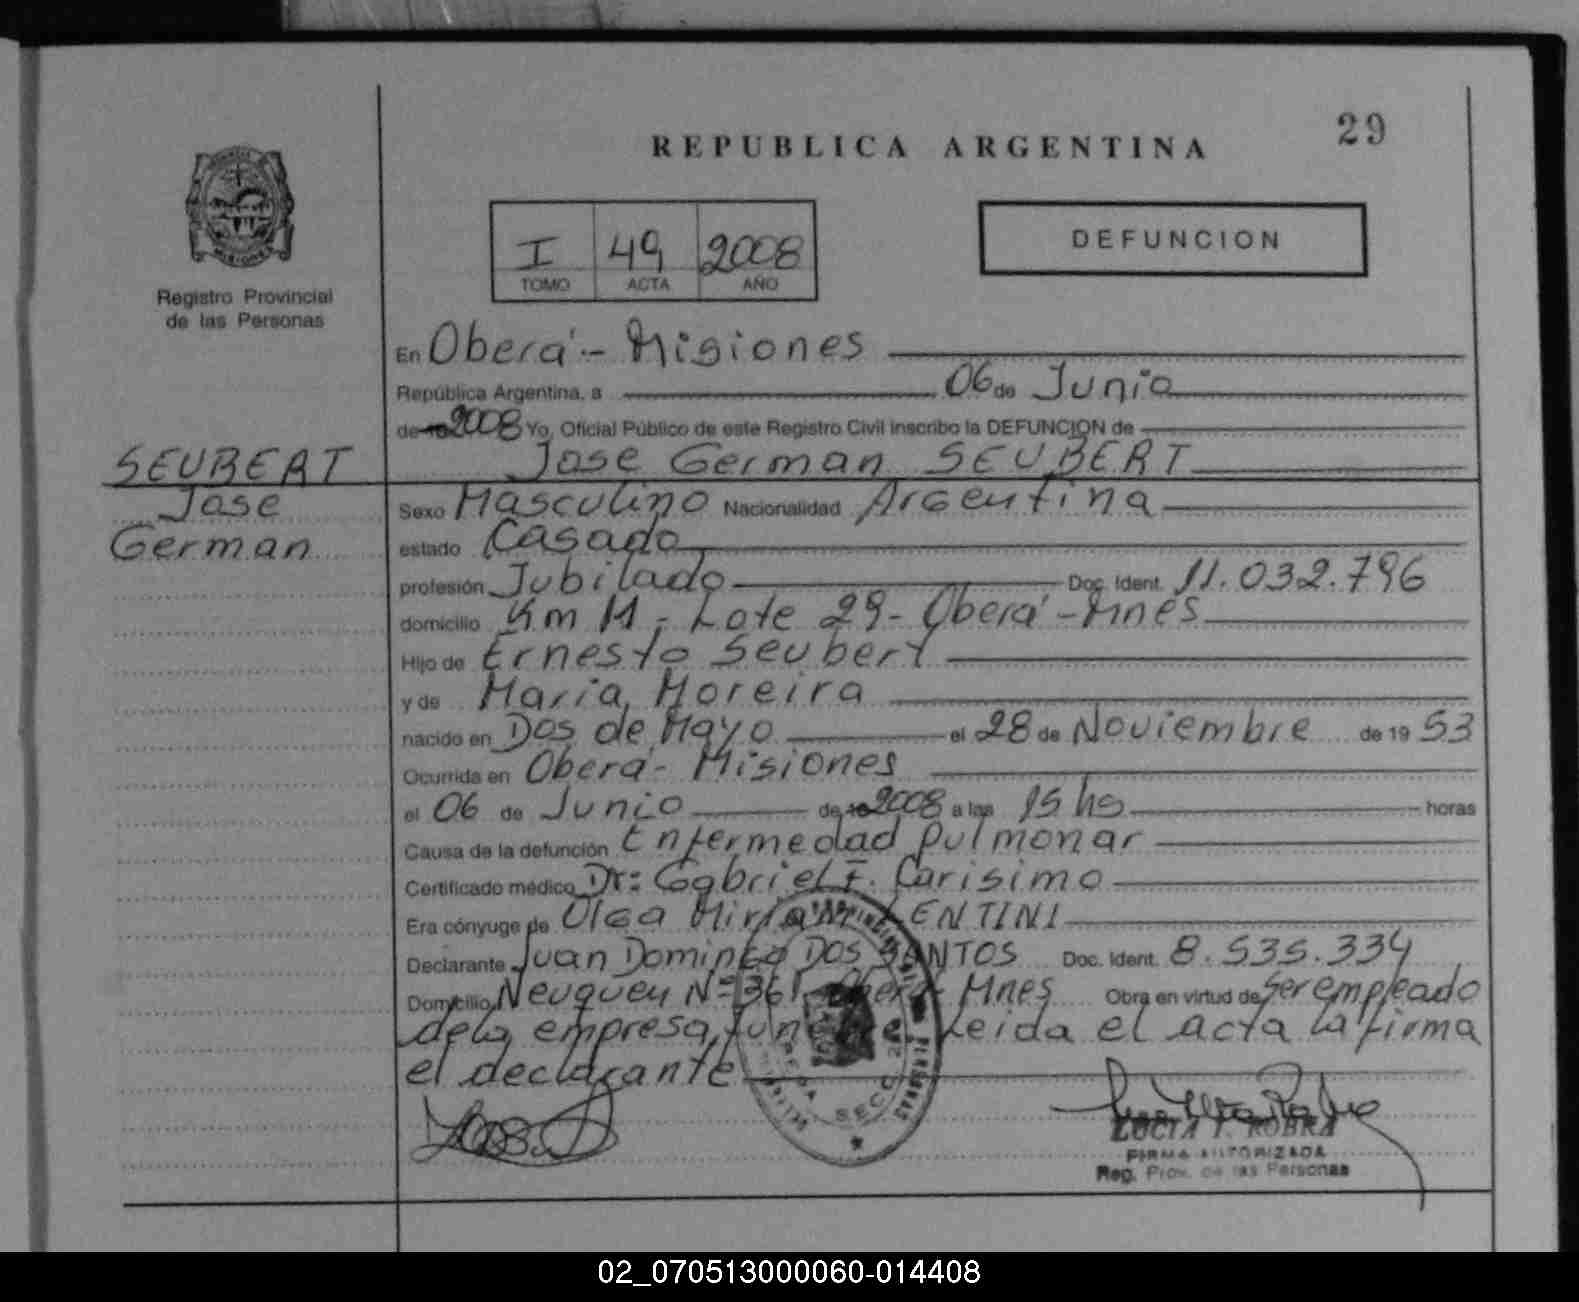 29
REPUBLICA ARGENTINA
I 49 2008
TOMO ACTA AÑO
DEFUNCION
Registro Provincial
de las Personas
En Oberá - Misiones
República Argentina, a 06 de Junio
de 19 2008 Yo, Oficial Público de este Registro Civil inscribo la DEFUNCION de
Jose German SEUBERT
SEUBERT
Jose
German
Sexo Masculino Nacionalidad Argentina
estado Casado
profesión Jubilado Doc. Ident. 11.032.796
domicilio Km 11 - Lote 29 - Oberá - Mnes
Hijo de Ernesto Seubert
y de Maria Moreira
nacido en Dos de Mayo el 28 de Noviembre de 19 53
Ocurrida en Oberá - Misiones
el 06 de Junio de 19 2008 a las 15 hs horas
Causa de la defunción Enfermedad Pulmonar
Certificado médico Dr: Gabriel F. Carisimo
Era cónyuge de Olga Miriam LENTINI
Declarante Juan Domingo DOS SANTOS Doc. Ident. 8.535.334
Domicilio Neuquen Nº 361 - Oberá - Mnes Obra en virtud de Ser empleado
de la empresa Leida el acta la firma
el declarante
SECC
LUCIA I. ROBRA
FIRMA AUTORIZADA
Reg. Prov. de las Personas
02_070513000060-014408